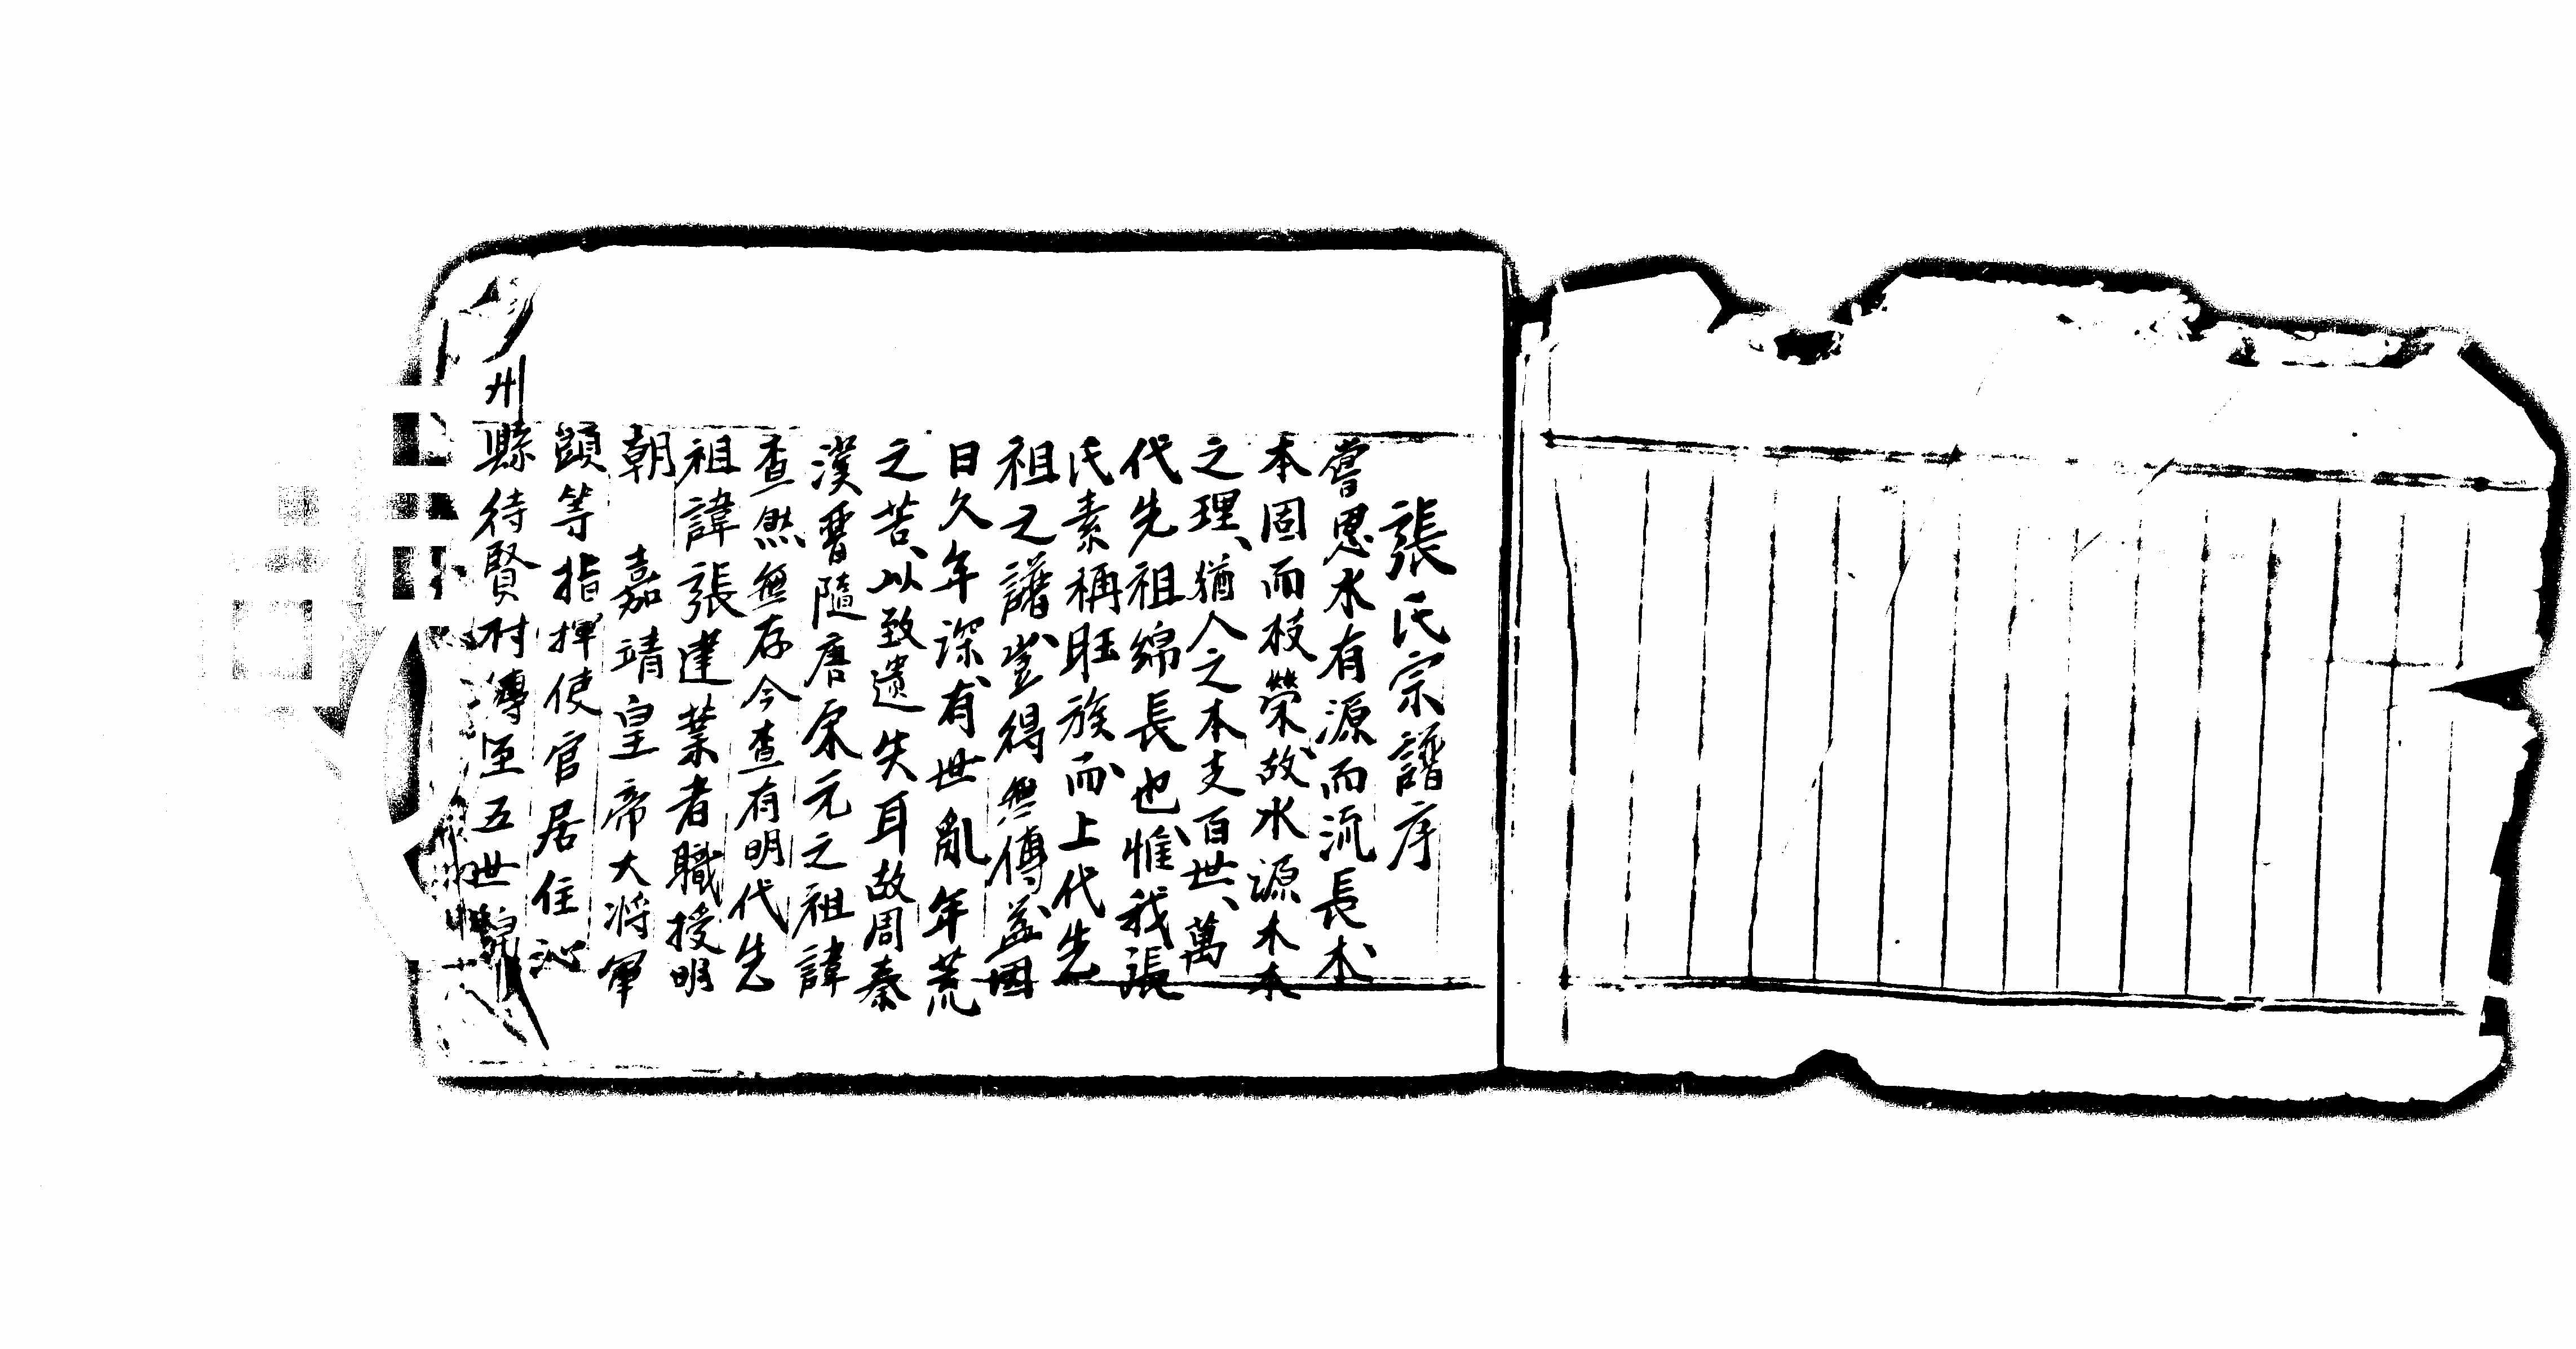 張氏宗譜序
嘗思水有源而流長木、
本固而枝榮、故水源木本
之理、猶人之本支百世、萬
代先祖綿長也、惟我張
氏素稱旺族、而上代先
祖之譜豈得無傳、蓋因
日久年深、有世亂年荒
之苦、以致遺失耳故周秦
漢晋隨唐宋元之祖諱
查然無存今查有明代先
祖諱張建業者職授明
朝　嘉靖皇帝大将軍
頭等指揮使官居住沁
州縣待賢村傳至五世